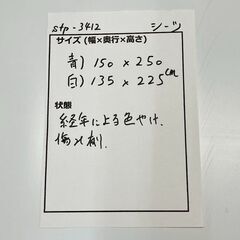 stp-3412 シーツ
サイズ (幅×奥行×高さ)
青) 150 × 250
白) 135 × 225cm
状態
経年による色やけ.
傷み有.